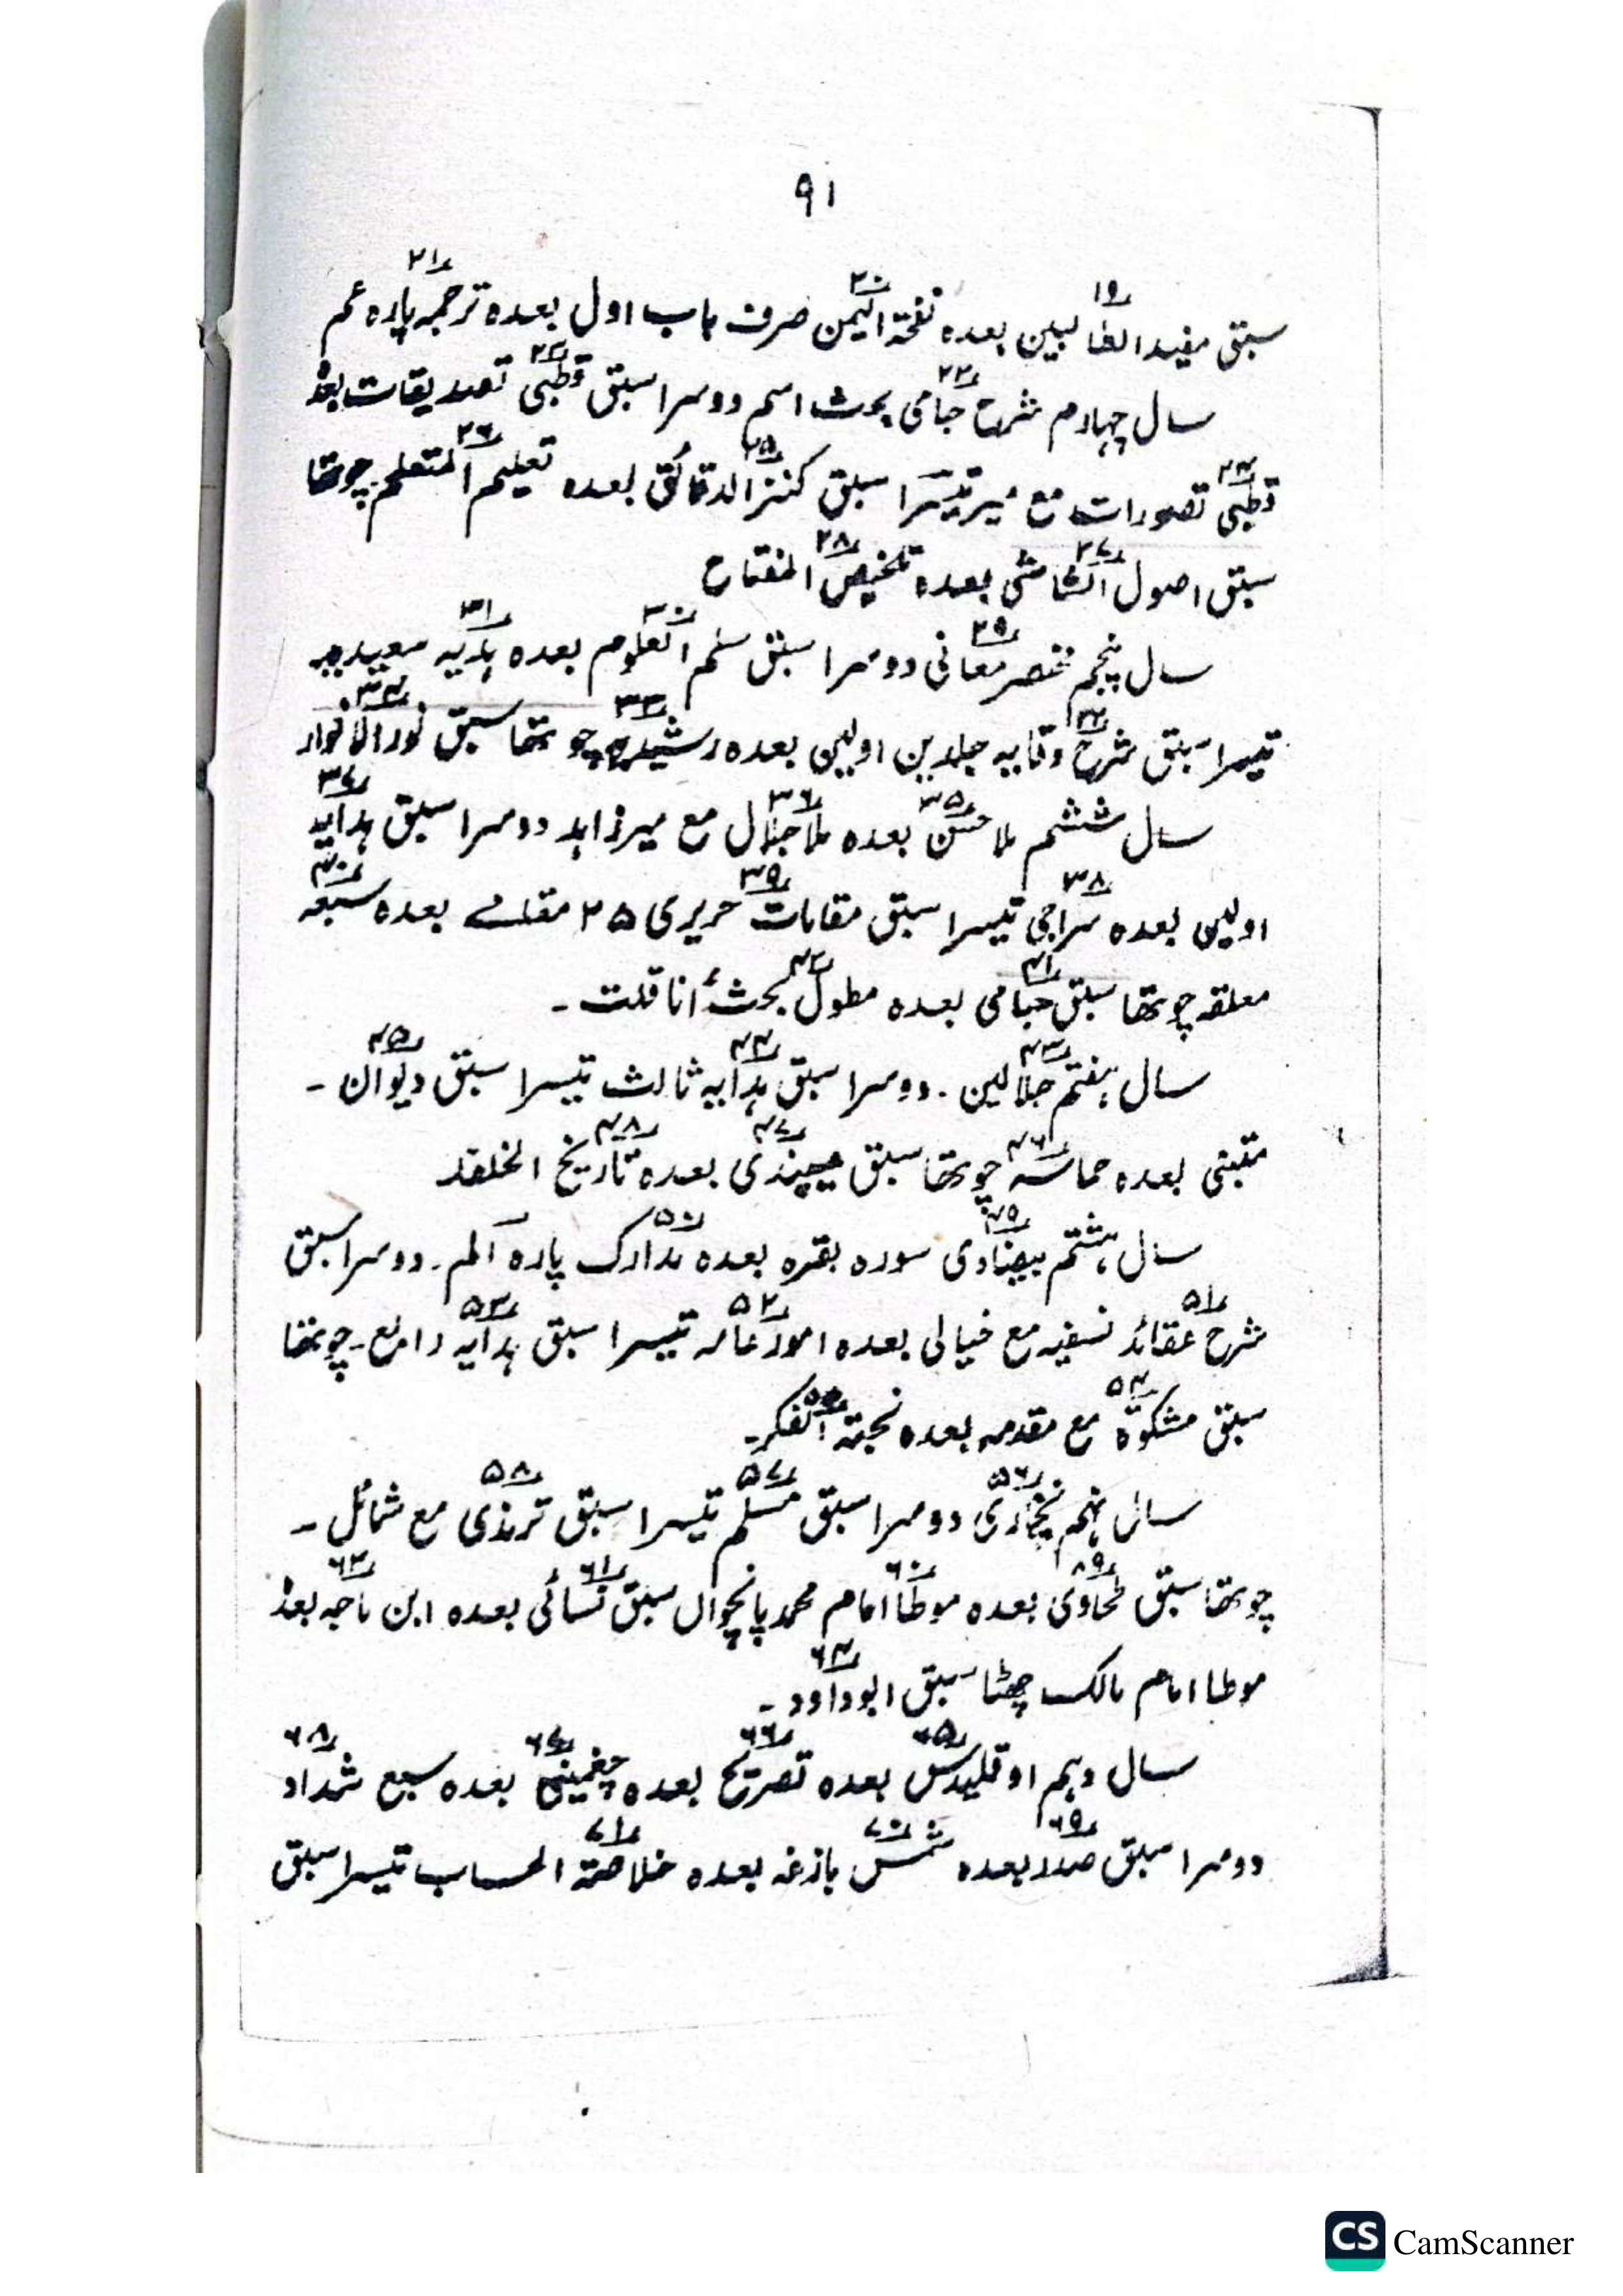 ۹۱
سبق مفید الطالبین بعدہ نفحۃ الیمن صرف باب اول بعدہ ترجمہ پارہ عم
سال چہارم شرح جامی بحث اسم دوسرا سبق قطبی تصدیقات بعدہٗ
قطبی تصورات مع میر تیسرا سبق کنز الدقائق بعدہ تعلیم المتعلم چوتھا
سبق اصول الشاشی بعدہ تلخیص المفتاح
سال پنجم مختصر معانی دوسرا سبق سلم العلوم بعدہ ہدیہ سعیدیہ
تیسرا سبق شرح وقایہ جلدین اولین بعدہ رشیدیہ چوتھا سبق نور الانوار
سال ششم ملا حسن بعدہ ملا جلال مع میر زاہد دوسرا سبق ہدایہ
اولین بعدہ سراجی تیسرا سبق مقامات حریری ۲۵ مقامے بعدہ سبعہ
معلقہ چوتھا سبق حسامی بعدہ مطول بحث أنا قلت ۔
سال ہفتم جلالین ۔ دوسرا سبق ہدایہ ثالث تیسرا سبق دیوان ۔
متبنی بعدہ حماسہ چوتھا سبق میبذی بعدہ تاریخ الخلفاء
سال ہشتم بیضاوی سورہ بقرہ بعدہ مدارک پارہ آلم ۔ دوسرا سبق
شرح عقائد نسفیہ مع خیالی بعدہ امور عامہ تیسرا سبق ہدایہ رابع ۔ چوتھا
سبق مشکوٰۃ مع مقدمہ بعدہ نخبۃ الفکر ۔
سال نہم بخاری دوسرا سبق مسلم تیسرا سبق ترمذی مع شمائل ۔
چوتھا سبق طحاوی بعدہ موطا امام محمد پانچواں سبق نسائی بعدہ ابن ماجہ بعدہٗ
موطا امام مالک چھٹا سبق ابوداود ۔
سال دہم اوقلیدس بعدہ تصریح بعدہ چغمینی بعدہ سبع شداد
دوسرا سبق صدرا بعدہ شمس بازغہ بعدہ خلاصۃ الحساب تیسرا سبق
CS CamScanner